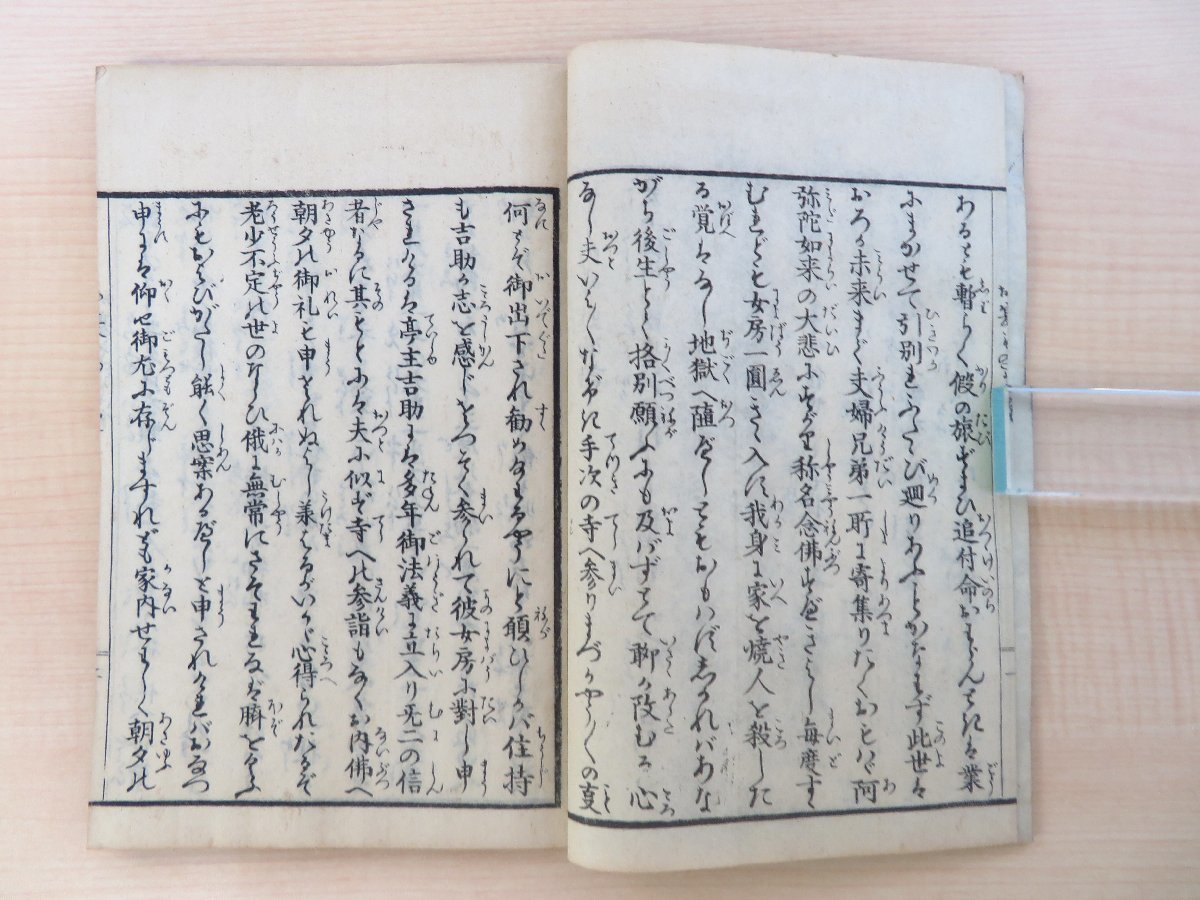 あるとも暫らく假の旅ずまひ追付命おはらんときは業
にまかせて引別れふたゝび廻りあふことかなはず此世は
おろか未来まで夫婦兄弟一所に寄集りたくおもはゞ阿
弥陀如来の大悲にすがり称名念佛すべきよし毎度すゝ
むれども女房一圓きゝ入れず我身に家を焼人を殺した
る覚はなし地獄へ墮べしともおもはずしかればあな
がち後生とて格別願ふにも及ばずとて聊か改むる心
なし夫いはくなずき手次の寺へ参りまづかやう〳〵の事
何とぞ御出下され勧め給はるやうにと頼ひしかバ住持
も吉助が志を感じさつそく参られて彼女房に對し申
されけるは亭主吉助には多年御法義に立入り無二の信
者なるに其もとには夫に似ず寺への参詣もなくお内佛へ
朝夕の御礼も申されぬよし兼
心得られたるぞ
老少不定の世のならひ俄に無常にさそはれなば臍をくふ
にもおよびがたし能く思案あるべしと申されければおなつ
申には仰せ御尤に存じますれども家内せわしく朝夕の